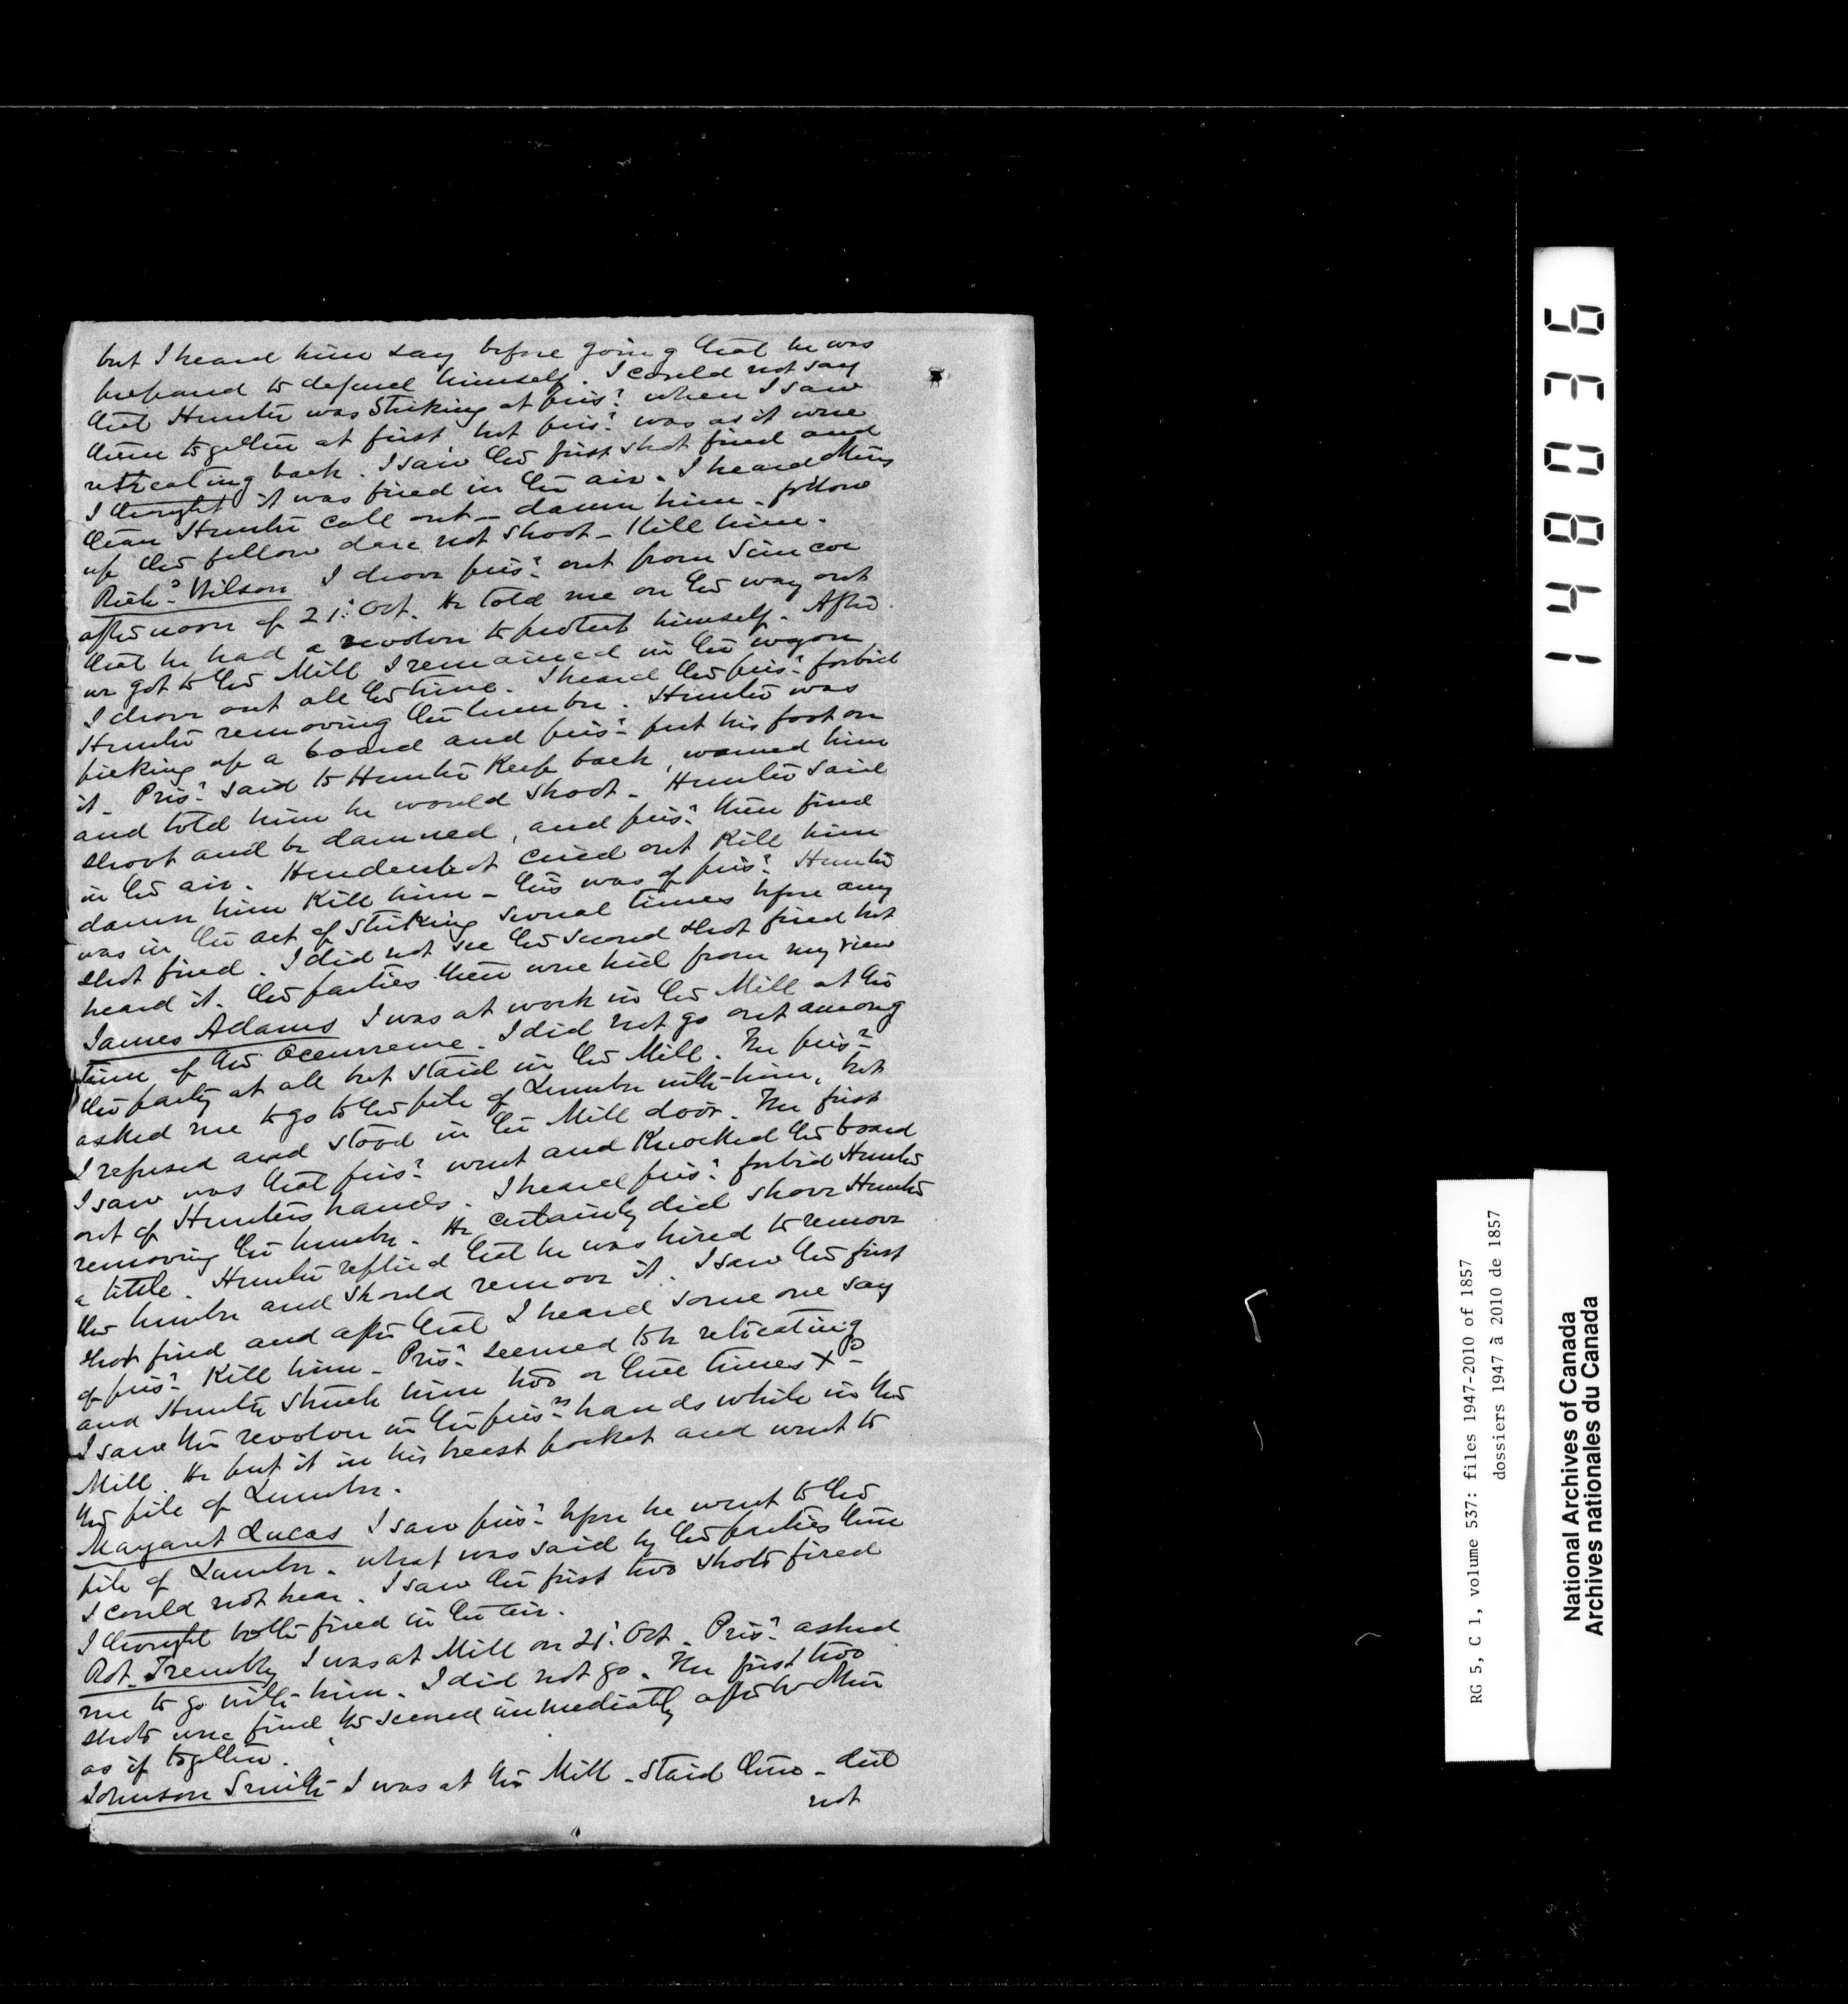 but I heard him say before going that he was
prepared to defend himself. I could not say
that Hunter was Striking at pris.r when I saw
them together at first, but pris.r was as it were
retreating back. I saw the first shot fired and
I thought it was fired in the air. I heard others
than Hunter call out - damn him - follow
up the fellow dare not shoot - Kill him.
Rich.d Wilson I drove pris.r out from Simcoe
afternoon of 21st Oct. He told me on the way out
that he had a revolver to protect himself. After
we got to the Mill I remained in the wagon
I drove out all the time. I heard the pris.r forbid
Hunter removing the lumber. Hunter was
picking up a board and pris.r put his foot on
it. Pris.r said to Hunter Keep back, warned him
and told him he would shoot - Hunter said
shoot and be damned, and pris.r then fired
in the air. cried out Kill him
damn him Kill him - this was of pris.r Hunter
was in the act of striking several times before any
shot fired. I did not see the second shot fired but
heard it. The parties then were hid from my view
James Adams I was at work in the Mill at the
time of the occurrence. I did not go out among
the party at all but staid in the Mill. The pris.r
asked me to go to the pile of Lumber with him, but
I refused and stood in the Mill door. The first
I saw was that pris.r went and Knocked the board
out of Hunters hands. I heard pris.r forbid Hunter
removing the lumber. He certainly did shove Hunter
a little. Hunter replied that he was hired to remove
the lumber and should remove it. I saw the first
shot fired and after that I heard some one say
of pris.r Kill him - Pris.r seemed to be retreating
and Hunter struck him two or three times X.d
I saw the revolver in the pris.rs hands while in the
Mill. He put it in his breast pocket and went to
the pile of Lumber.
Margaret Lucas I saw pris.r before he went to the
pile of Lumber. what was said by the parties there
I could not hear. I saw the first two shots fired
I thought both fired in the air.
Rot. Trembly I was at Mill on 21st Oct. Pris.r asked
me to go with him. I did not go. The first two
shots were fired, the second immediately after the other
as if together.
Johnson Smith I was at the Mill - staid there - did
not
148036
RG 5, C 1, volume 537: files 1947-2010 of 1857
dossiers 1947 à 2010 de 1857
National Archives of Canada
Archives nationales du Canada